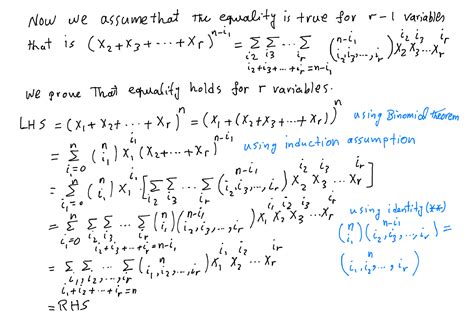 Now we assume that the equality is true for r-1 variables
that is (x₂+x₃+···+xᵣ)ⁿ⁻ⁱ¹ = Σ Σ ··· Σ (n-i₁ / i₂,i₃,···,iᵣ) x₂^i₂ x₃^i₃ ··· xᵣ^iᵣ
i₂ i₃ iᵣ
i₂+i₃+···+iᵣ=n-i₁
we prove That equality holds for r variables.
LHS = (x₁+x₂+···+xᵣ)ⁿ = (x₁+(x₂+x₃+···+xᵣ))ⁿ using Binomial theorem
= Σ_{i=0}^{n} (n / i₁) x₁^i₁ (x₂+···+xᵣ)^{n-i₁} using induction assumption
= Σ_{i₁=0}^{n} (n / i₁) x₁^i₁ [Σ Σ ··· Σ (n-i₁ / i₂,i₃,···,iᵣ) x₂^i₂ x₃^i₃ ··· xᵣ^iᵣ]
i₂ i₃ iᵣ
= Σ_{i₁=0}^{n} Σ Σ ··· Σ (n / i₁)(n-i₁ / i₂,i₃,···,iᵣ) x₁^i₁ x₂^i₂ x₃^i₃ ··· xᵣ^iᵣ using identity (**)
i₂ i₃ iᵣ
i₂+i₃+···+iᵣ=n-i₁
(n / i₁)(n-i₁ / i₂,i₃,···,iᵣ) =
(n / i₁,i₂,···,iᵣ)
= Σ Σ ··· Σ (n / i₁,i₂,···,iᵣ) x₁^i₁ x₂^i₂ ··· xᵣ^iᵣ
i₁,i₂,···,iᵣ
i₁+i₂+···+iᵣ=n
= RHS